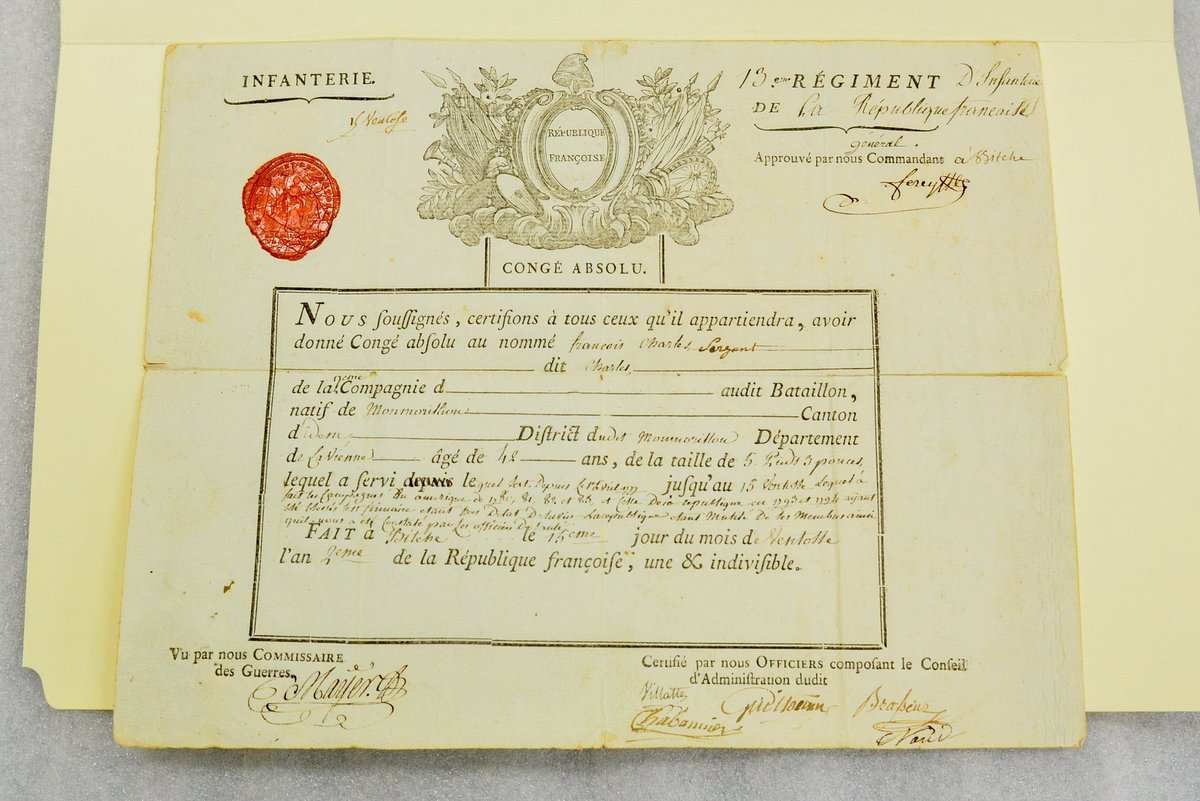 INFANTERIE.
RÉPUBLIQUE
FRANÇOISE
13.eme RÉGIMENT D'Infanterie
DE La République francaise
général.
Approuvé par nous Commandant à Bitche
CONGÉ ABSOLU.
NOUS souſſignés, certifions à tous ceux qu'il appartiendra, avoir
donné Congé abſolu au nommé francois Charles Sergent
dit Charles
de la 2eme Compagnie d audit Bataillon,
natif de Monmorillon Canton
d'idem Diſtrict dudit Monmorillon Département
de La Vienne âgé de 42 ans, de la taille de 5 Pieds 3 pouces,
lequel a ſervi lequel sert Depuis juſqu'au 15 Ventosse lequel à
fait les Campagnes En amerique de 1780, 81, 82 et 83, et Celle De la republique en 1793 et 1794 ayant
été blessé hors Detat De servir La republique etant Mutilé De ses Membres ainsi
quil nous a été Constaté par Les officiers De santé
FAIT à Bitche le 15eme jour du mois de Ventosse
l'an 2eme de la République françoiſe, une & indiviſible.
Vu par nous COMMISSAIRE
des Guerres,
Mayer
Certifié par nous OFFICIERS compoſant le Conſeil
d'Adminiſtration dudit
Villatte
Chabannier
Braseur